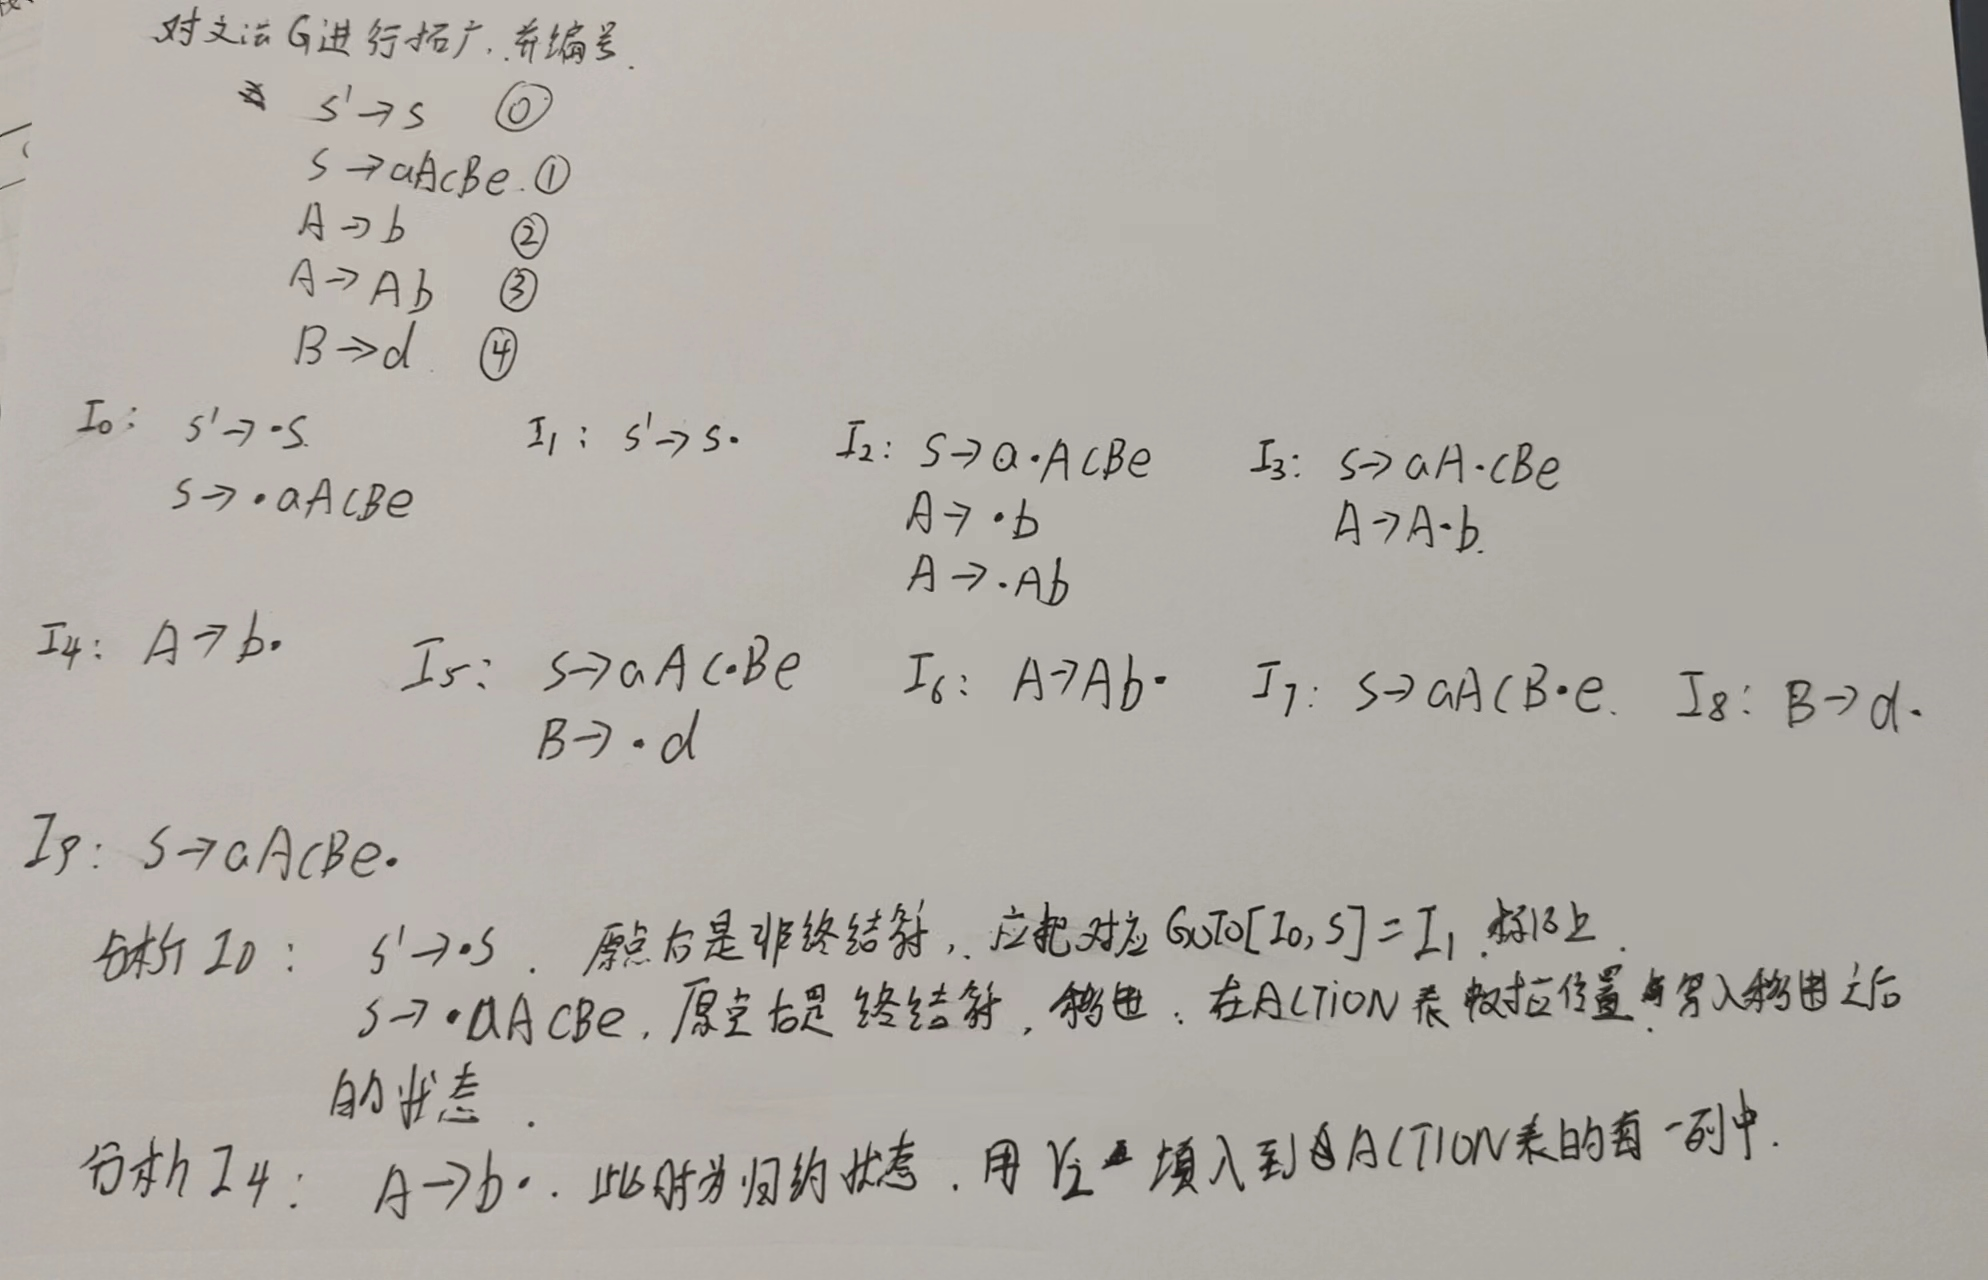 对文法G进行拓广.并编号.
S'→S ⓪
S→aAcBe.①
A→b ②
A→Ab ③
B→d. ④
I0: S'→·S. I1: S'→S· I2: S→a·AcBe I3: S→aA·cBe
S→·aAcBe A→·b A→A·b.
A→·Ab
I4: A→b· I5: S→aAc·Be I6: A→Ab· I7: S→aAcB·e. I8: B→d·
B→·d
I9: S→aAcBe·
分析I0: S'→·S. 原点右是非终结符,应把对应GOTO[I0,S]=I1.标记上.
S→·aAcBe.原点右是终结符,移进.在ACTION表相对应位置写入移进之后
的状态.
分析I4: A→b·.此时为归约状态.用r2填入到ACTION表的每一列中.